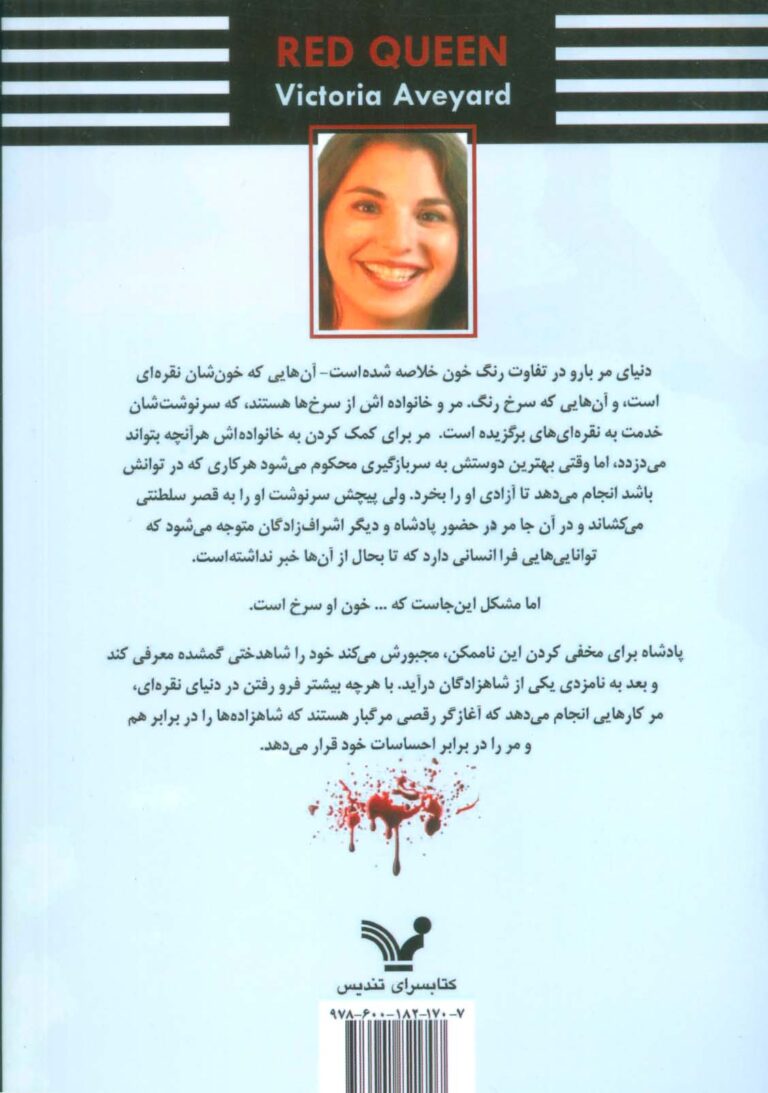 RED QUEEN
Victoria Aveyard
دنیای مر بارو در تفاوت رنگ خون خلاصه شده‌است- آن‌هایی که خون‌شان نقره‌ای
است، و آن‌هایی که سرخ رنگ. مر و خانواده اش از سرخ‌ها هستند، که سرنوشت‌شان
خدمت به نقره‌ای‌های برگزیده است. مر برای کمک کردن به خانواده‌اش هرآنچه بتواند
می‌دزدد، اما وقتی بهترین دوستش به سربازگیری محکوم می‌شود هرکاری که در توانش
باشد انجام می‌دهد تا آزادی او را بخرد. ولی پیچش سرنوشت او را به قصر سلطنتی
می‌کشاند و در آن جا مر در حضور پادشاه و دیگر اشراف‌زادگان متوجه می‌شود که
توانایی‌هایی فرا انسانی دارد که تا بحال از آن‌ها خبر نداشته‌است.
اما مشکل این‌جاست که ... خون او سرخ است.
پادشاه برای مخفی کردن این ناممکن، مجبورش می‌کند خود را شاهدختی گمشده معرفی کند
و بعد به نامزدی یکی از شاهزادگان درآید. با هرچه بیشتر فرو رفتن در دنیای نقره‌ای،
مر کارهایی انجام می‌دهد که آغازگر رقصی مرگبار هستند که شاهزاده‌ها را در برابر هم
و مر را در برابر احساسات خود قرار می‌دهد.
کتابسرای تندیس
۹۷۸-۶۰۰-۱۸۲-۱۷۰-۷